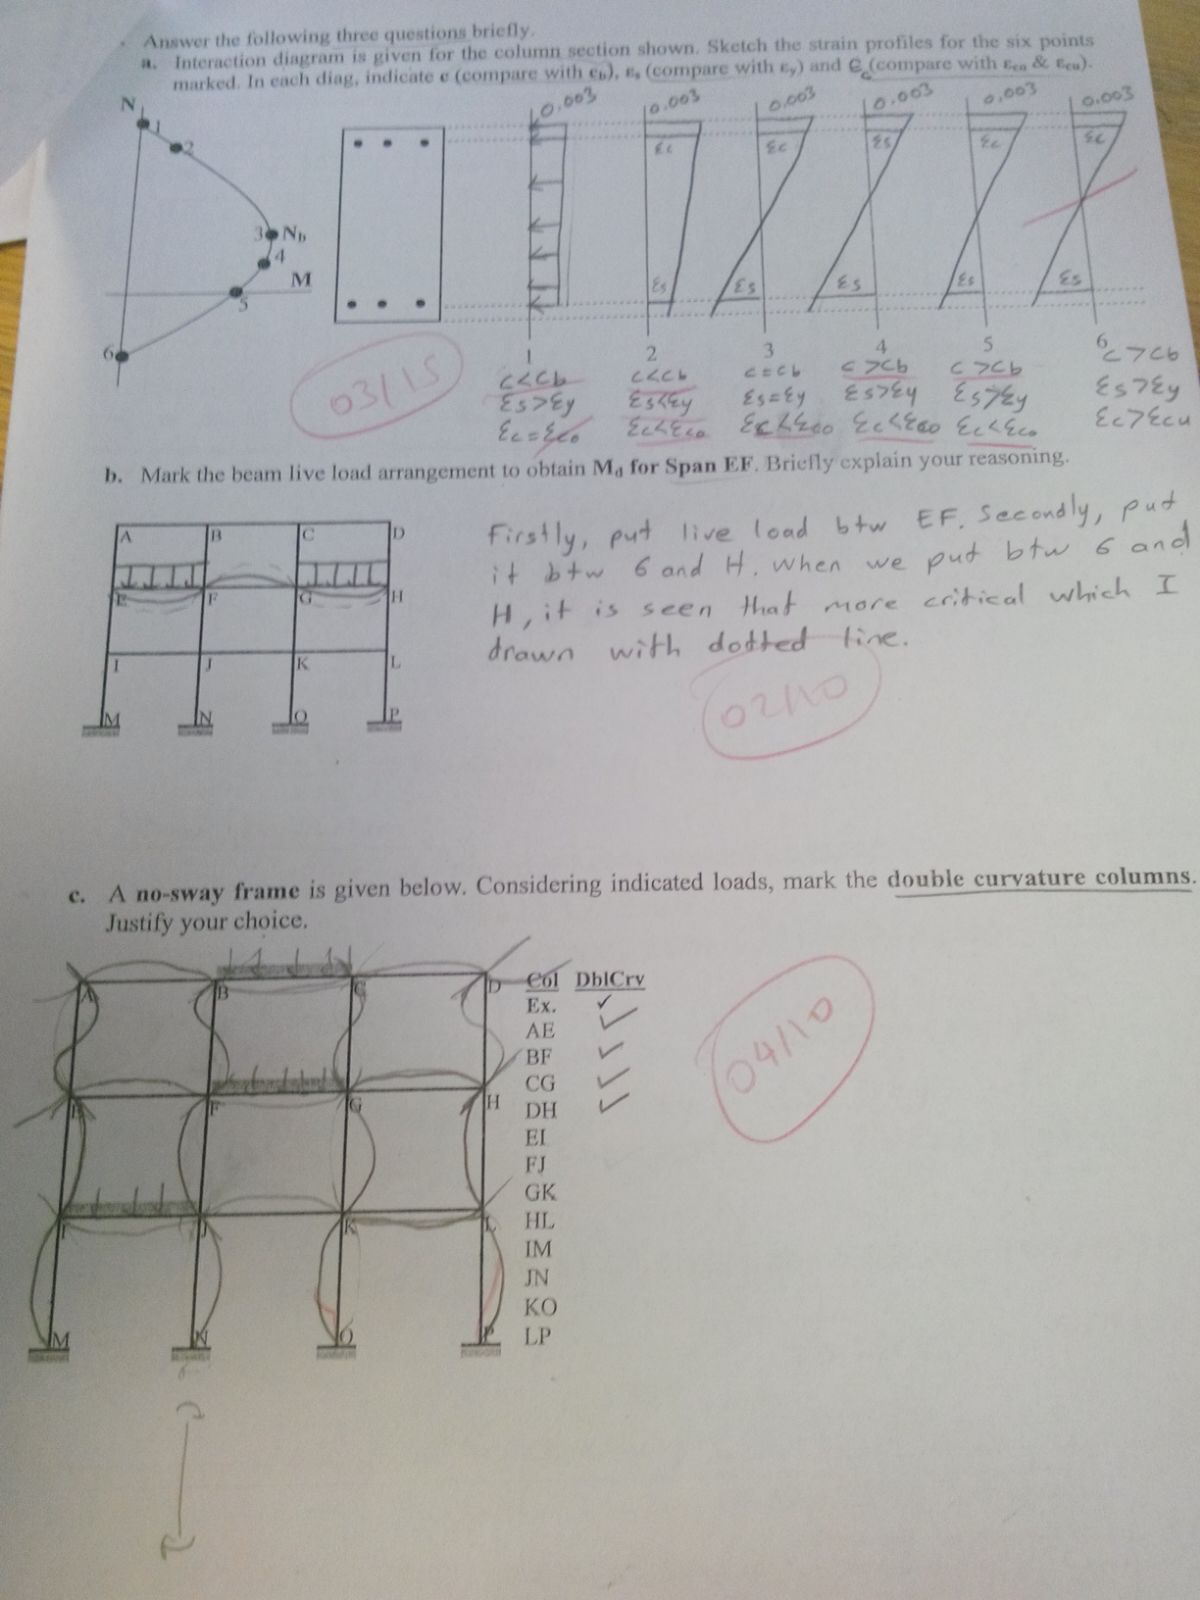 Answer the following three questions briefly.
a. Interaction diagram is given for the column section shown. Sketch the strain profiles for the six points
marked. In each diag, indicate c (compare with cb), εs (compare with εy) and εc (compare with εco & εcu).
N
1
2
3 Nb
4
M
5
6
0.003 0.003 0.003 0.003 0.003 0.003
εc εc εs εc εc
εs εs εs εs εs
1 2 3 4 5 6
c<cb c<cb c=cb c>cb c>cb c>cb
εs>εy εs<εy εs=εy εs>εy εs>εy εs>εy
εc=εco εc<εco εc<εco εc<εco εc<εco εc>εcu
03/15
b. Mark the beam live load arrangement to obtain Md for Span EF. Briefly explain your reasoning.
A B C D
E F G H
I J K L
M N O P
Firstly, put live load btw EF. Secondly, put
it btw G and H. When we put btw G and
H, it is seen that more critical which I
drawn with dotted line.
02/10
c. A no-sway frame is given below. Considering indicated loads, mark the double curvature columns.
Justify your choice.
A B C D
E F G H
I J K L
M N O P
Col DblCrv
Ex. ✓
AE ✓
BF ✓
CG ✓
DH ✓
EI
FJ
GK
HL
IM
JN
KO
LP
04/10